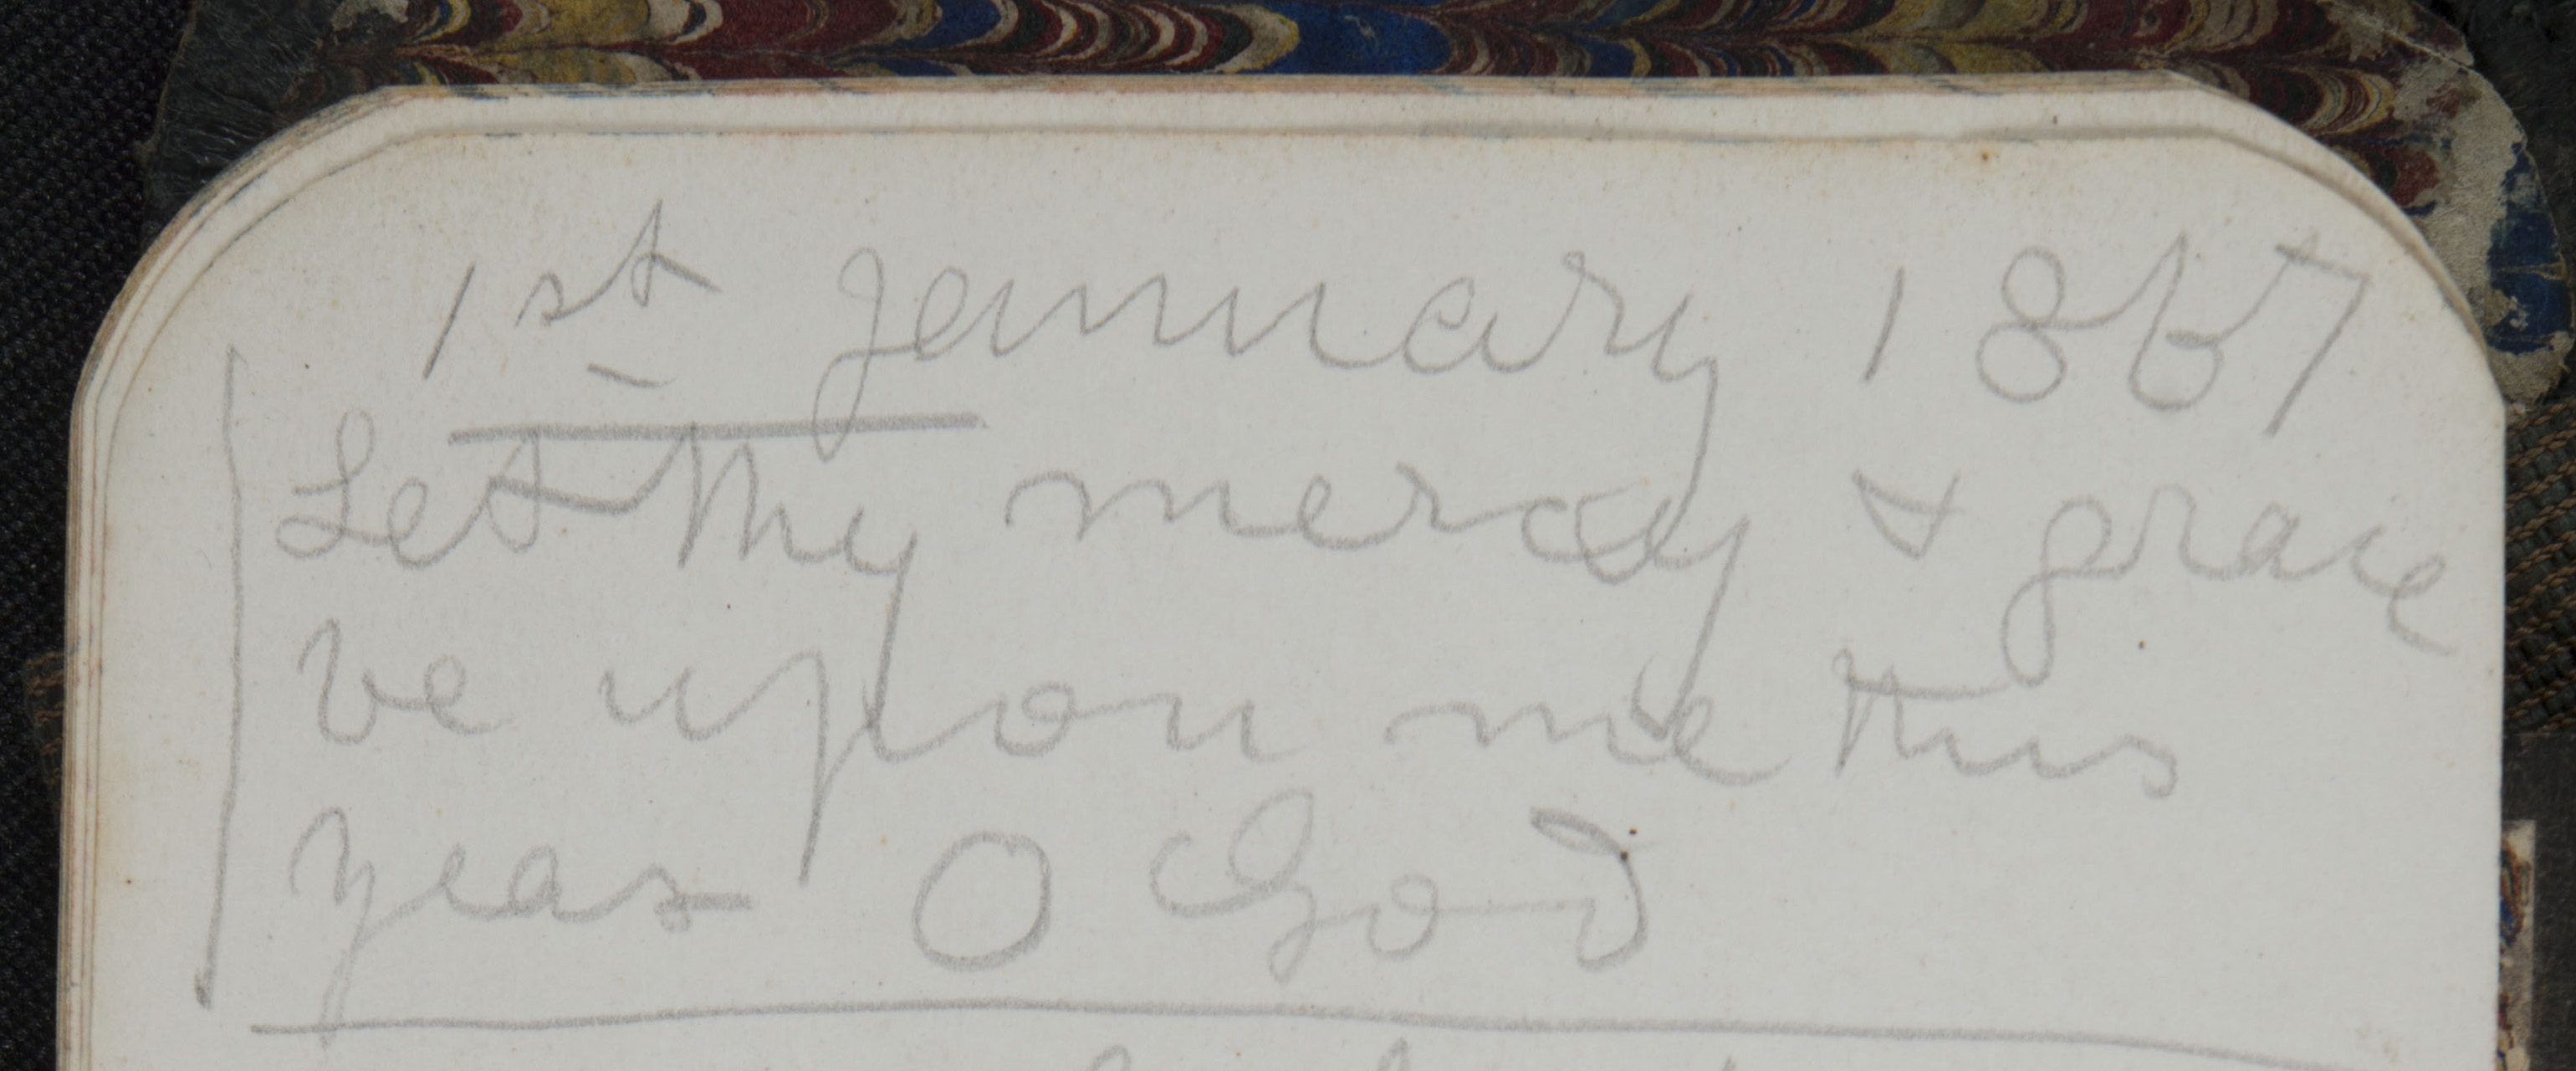 1st January 1867
Let Thy mercy & grace
be upon me this
year O God